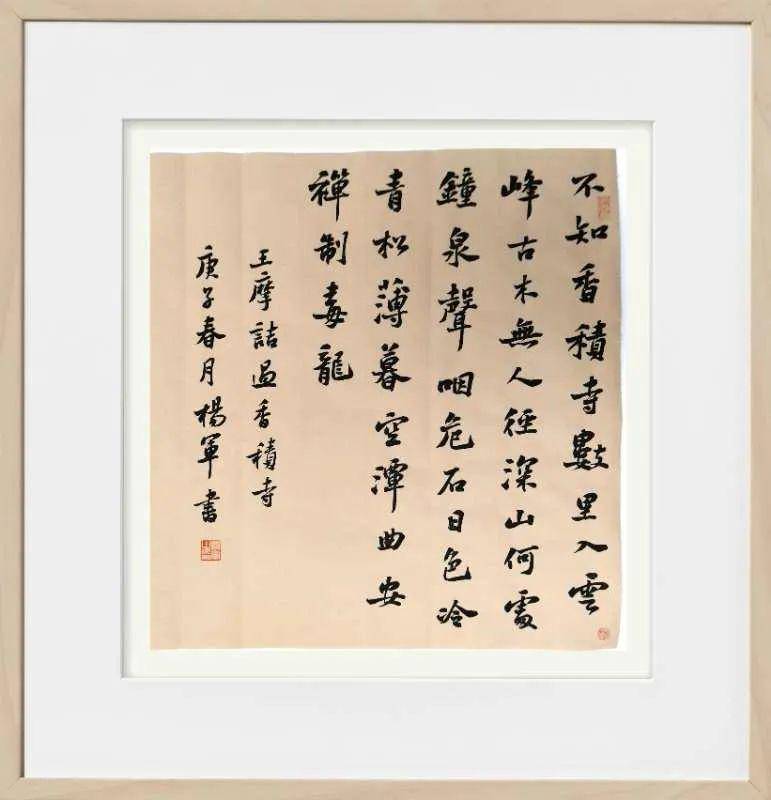 不知香積寺數里入雲
峰古木無人徑深山何處
鐘泉聲咽危石日色冷
青松薄暮空潭曲安
禪制毒龍
王摩詰過香積寺
庚子春月楊軍書